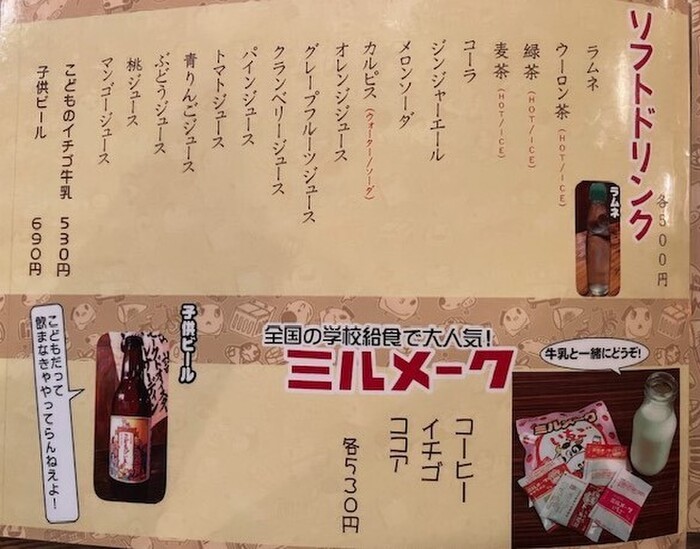 ソフトドリンク
各500円
ラムネ
ウーロン茶(HOT/ICE)
緑茶(HOT/ICE)
麦茶(HOT/ICE)
コーラ
ジンジャーエール
メロンソーダ
カルピス(ウォーター/ソーダ)
オレンジジュース
グレープフルーツジュース
クランベリージュース
パインジュース
トマトジュース
青りんごジュース
ぶどうジュース
桃ジュース
マンゴージュース
こどものイチゴ牛乳 530円
子供ビール 690円
ラムネ
全国の学校給食で大人気!
ミルメーク
コーヒー
イチゴ
ココア
各530円
牛乳と一緒にどうぞ!
ミルメーク
子供ビール
こどもだって
飲まなきゃやってらんねえよ!